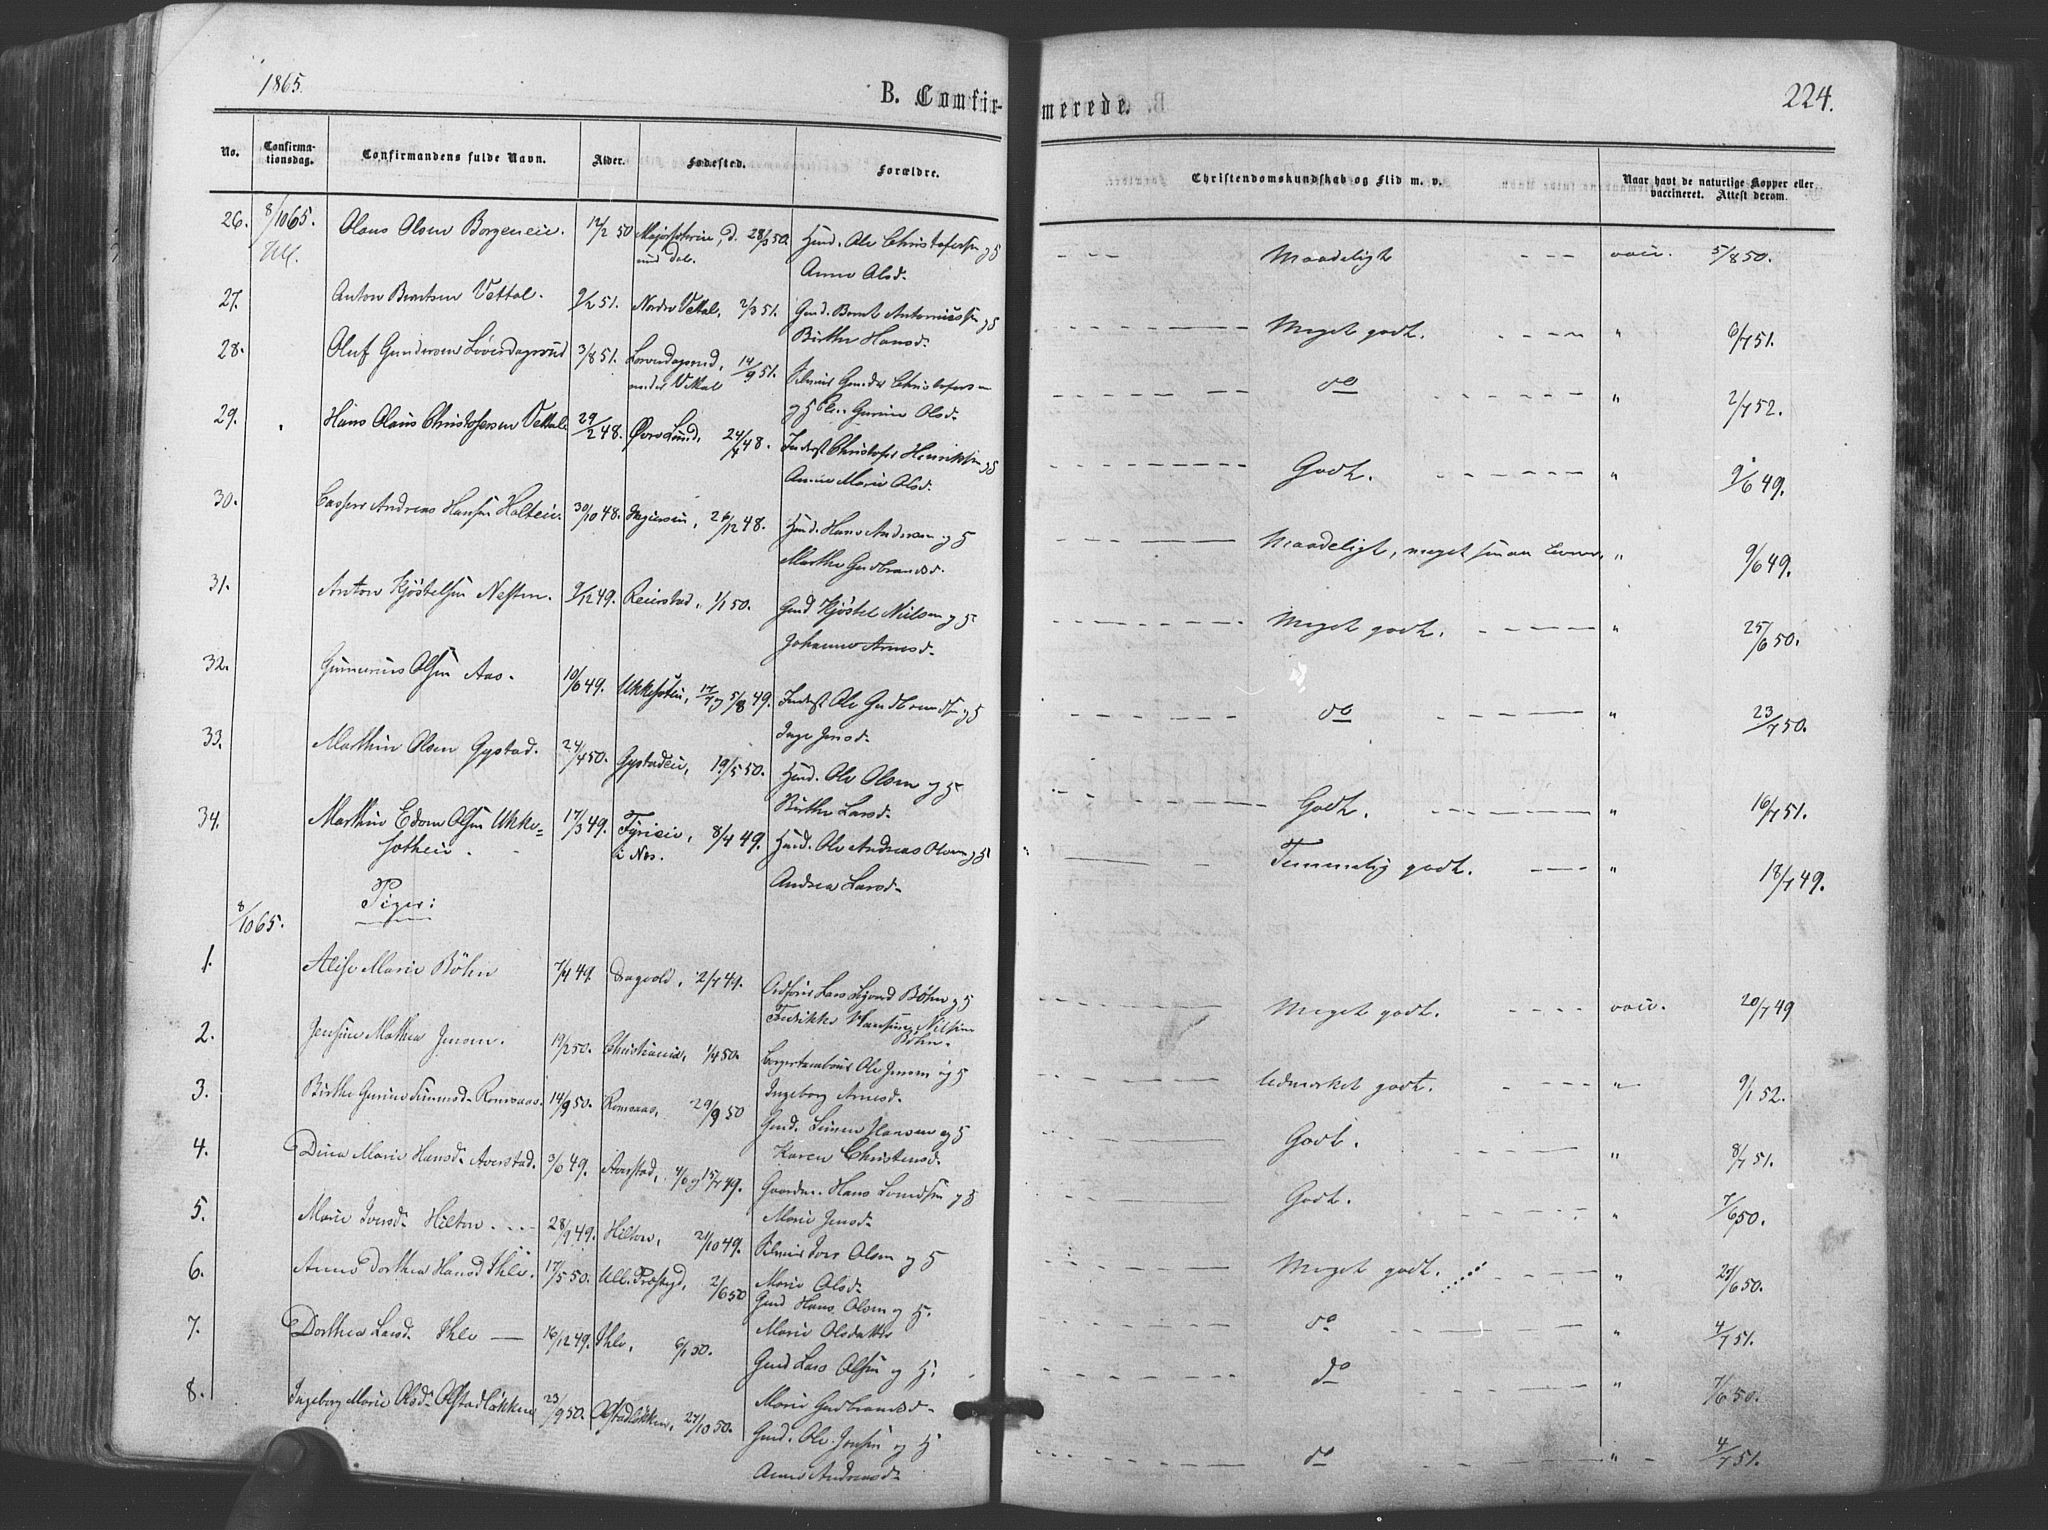 1865.
B. Comfir-
merede.
224.
No.
Confirma-
tionsdag.
Confirmandens fulde Navn.
Alder.
Fødested.
Forældre.
Christendomskundskab og Flid m. v.
Naar havt de naturlige Kopper eller
vaccineret. Attest derom.
26. 8/10 65. Olaus Olsen Borgeneie. 12/2 50 d. 28/3 50. Huusm. Ole Christofersen og H
Ull. Anne Olsd. Maadeligt vacc. 5/8 50.
27. Anton Berntsen Vettal. 9/2 51. Nordre Vettal, 2/3 51. Gmd. Bernt Antoniussen og H
Birthe Hansd. Meget godt. " 6/7 51.
28. Oluf Gundersen Løverdagsrud 3/8 51. Løverdagsrud, 14/9 51. Gunder Christofersen
under Vettal og H Gurine Olsd. do " 2/7 52.
29. Hans Olaus Christofersen Vettal 29/2 48. Øvre Lund, 24/4 48. Inderst Christofer Henriksen og H
Anne Marie Olsd. Godt. " 9/6 49.
30. Casper Andreas Hansen Holteie. 30/10 48. 26/12 48. Huusm. Hans Andersen og H
Marthe Gudbrandsd. Maadeligt, meget " 9/6 49.
31. Anton Kjøstelsen Nesten. 9/12 49. Reierstad, 1/1 50. Gmd Kjøstel Nielsen og H
Johanne Arnesd. Meget godt. " 25/6 50.
32. Gunnerius Olsen Aas. 10/6 49. 17/7 og 5/8 49. Inderst Ole Gudbrandsen og H
Inge Jensd. do " 23/7 50.
33. Marthin Olsen Gystad. 24/4 50. Gystadeie, 19/5 50. Huusm. Ole Olsen og H
Birthe Larsd. Godt. " 16/7 51.
34. Marthin Edom Olsen Ukke- 17/3 49. 8/4 49. Huusm. Ole Andreas Olsen og H
sotheie. i Nes. Andrea Larsd. Temmelig godt. " 18/7 49.
Piger:
8/10 65.
1. Alise Marie Bøhn 7/4 49. Dragvold, 2/7 49. Lars Sigvard Bøhn og H
Fredrikke Hansine Nilsine
Bøhn. Meget godt. vacc. 20/7 49
2. Jensine Mathea Jensen. 19/2 50. Christiania, 1/4 50. Ole Jensen og H
Ingeborg Arnesd. Udmerket godt. " 9/1 52.
3. Birthe Gurine Simensd. Romsaas. 14/9 50. Romsaas, 29/9 50 Gmd. Simen Hansen og H
Karen Christensd. Godt. " 8/7 51.
4. Dina Marie Hansd. Averstad. 3/6 49. Averstad, 4/6 og 15/7 49. Gaardm. Hans Lundsen og H
Marie Jensd. Godt. " 7/6 50.
5. Marie Iversd. Hilton. 28/9 49. Hilton, 21/10 49. Iver Olsen og H
Marie Olsd. Meget godt. " 27/6 50.
6. Anne Dorthea Hansd Ihle. 17/5 50. Ull. Præstgd, 2/6 50 Gmd Hans Olsen og H.
Marie Olsdatter do " 4/7 51.
7. Dorthea Larsd. Ihle 16/12 49. Ihle, 6/1 50. Gmd Lars Olsen og H.
Marie Gudbrandsd. do " 7/6 50.
8. Ingeborg Marie Olsd. Olstadløkken 23/9 50. Olstadløkken, 27/10 50. Gmd. Ole Jensen og H
Anne Andreasd. do " 4/7 51.